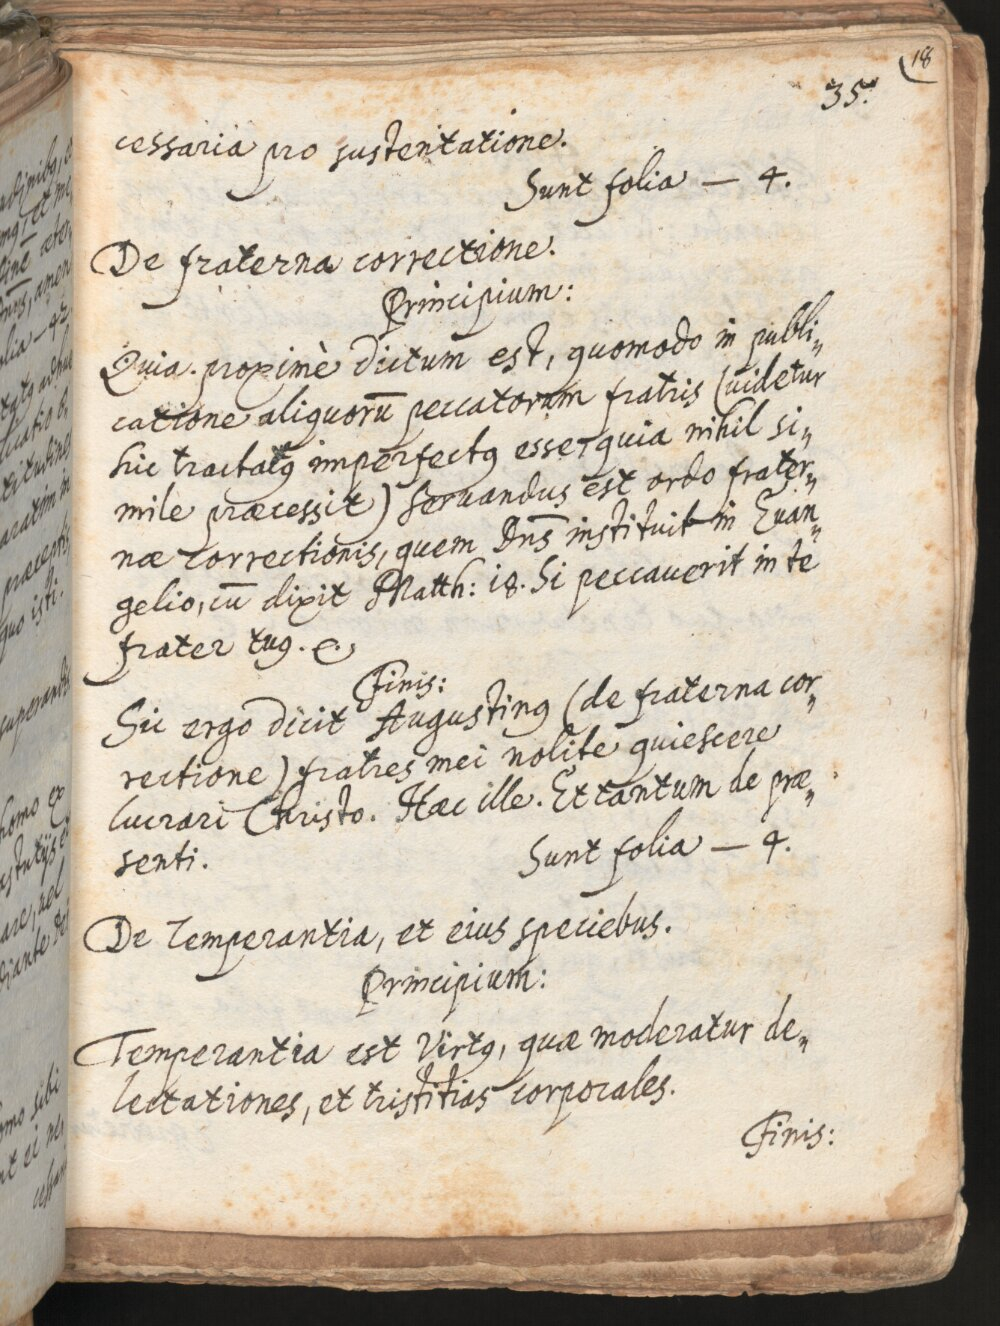 18
35.
cessaria pro sustentatione.
Sunt folia — 4.
De fraterna correctione.
Principium:
Quia proximè dictum est, quomodo in publi„
catione aliquorū peccatorum fratris (uidetur
hic tractatꝰ imperfectꝰ esse, quia nihil si„
mile præcessit) seruandus est ordo frater„
næ correctionis, quem Dn̄s instituit in Euan„
gelio, cū dixit Matth: 18. Si peccauerit in te
frater tuꝰ. &.
Finis:
Sic ergo dicit Augustinꝰ (de fraterna cor„
rectione) fratres mei nolite quiescere
lucrari Christo. Hæc ille. Et tantum de præ„
senti.
Sunt folia — 4.
De Temperantia, et eius speciebus.
Principium:
Temperantia est Virtꝰ, quæ moderatur de„
lectationes, et tristitias corporales.
Finis: